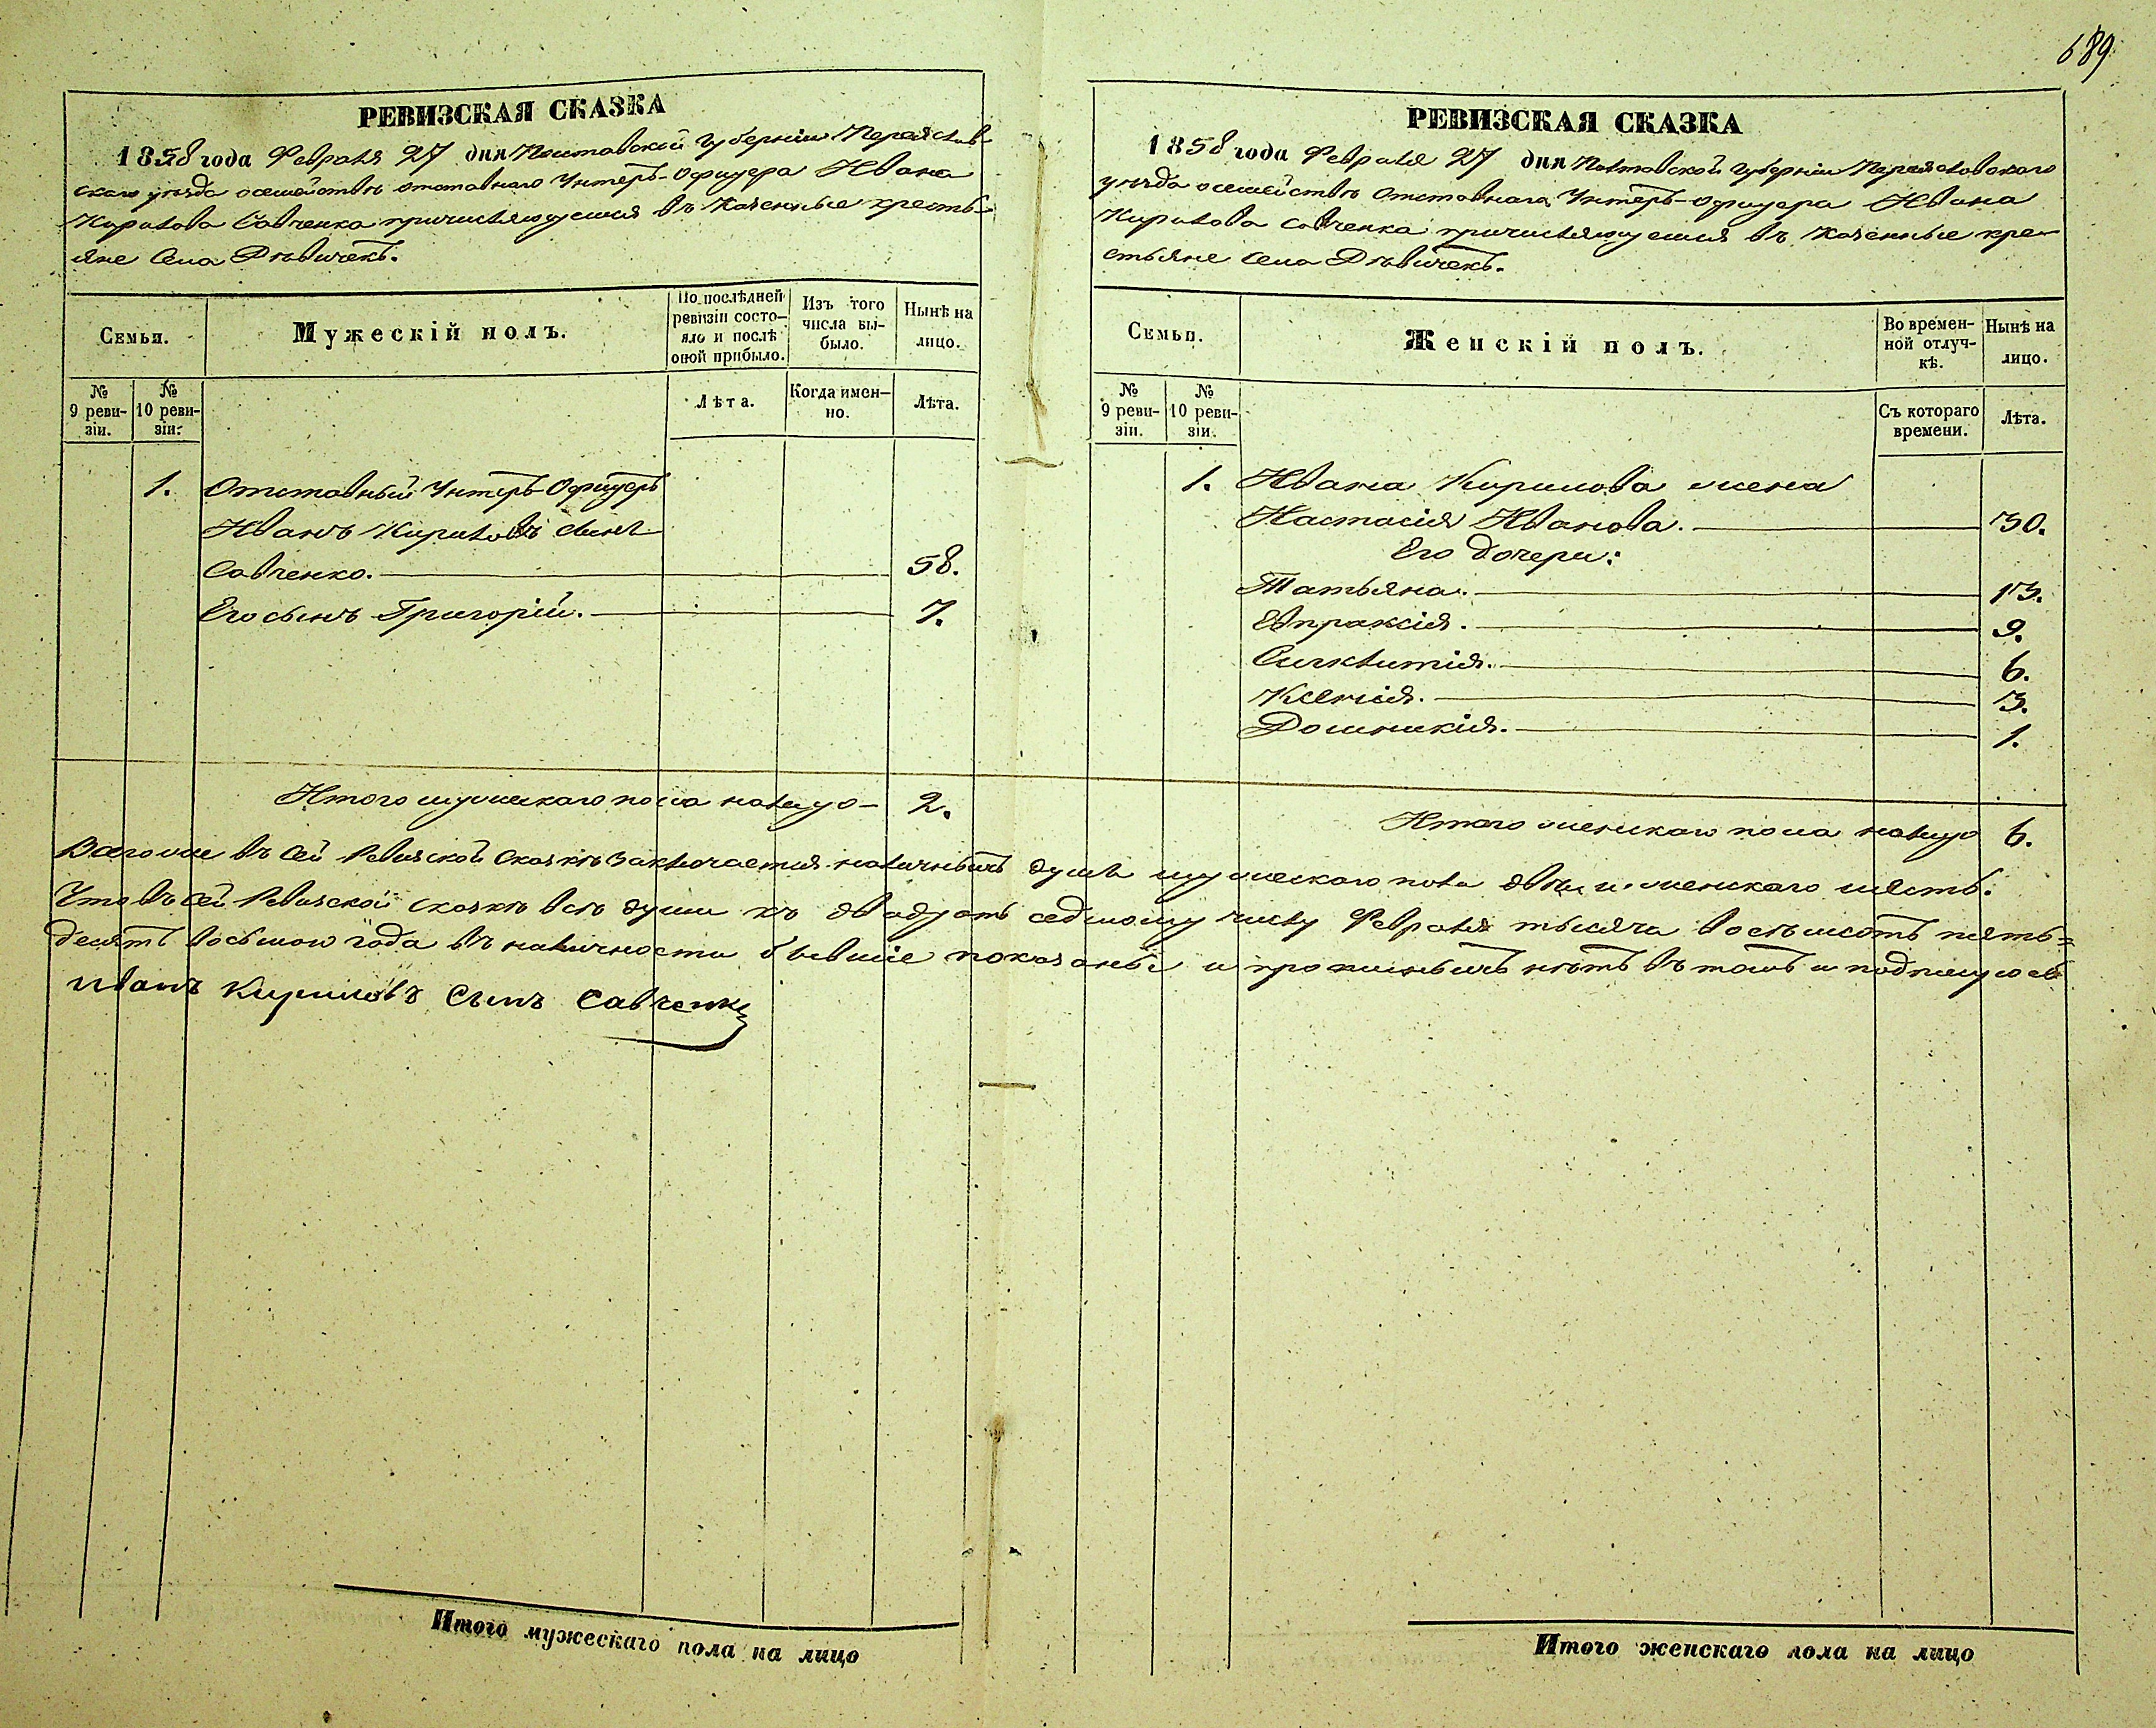 689.
РЕВИЗСКАЯ СКАЗКА
1858 года Февраля 27 дня Полтавской Губерніи Переяслав-
скаго уѣзда о семействѣ отставнаго Унтеръ-Офицера Ивана
Кирилова Савченка причисляющемся въ Казенные кресть-
яне Села Дѣвичекъ.
Семьи.
Мужескій полъ.
По послѣдней ревизіи состо-яло и послѣ оной прибыло.
Изъ того числа вы-было.
Нынѣ на лицо.
№ 9 реви-зіи.
№ 10 реви-зіи.
Лѣта.
Когда имен-но.
Лѣта.
1. Отставный Унтеръ-Офицеръ
Иванъ Кириловъ сынъ
Савченко. 58.
Его сынъ Григорій. 7.
Итого мужескаго пола налицо - 2.
РЕВИЗСКАЯ СКАЗКА
1858 года Февраля 27 дня Полтавской Губерніи Переяславскаго
уѣзда о семействѣ Отставнаго Унтеръ-Офицера Ивана
Кирилова Савченка причисляющемся въ Казенные кре-
стьяне Села Дѣвичекъ.
Семьи.
Женскій полъ.
Во времен-ной отлуч-кѣ.
Нынѣ на лицо.
№ 9 реви-зіи.
№ 10 реви-зіи.
Съ котораго времени.
Лѣта.
1. Ивана Кирилова жена
Настасія Иванова. 30.
Его дочери:
Татьяна. 13.
Евпраксія. 9.
Синклитія. 6.
Ксенія. 3.
Домникія. 1.
Итого женскаго пола налицо 6.
Всего же въ сей Ревизской Сказкѣ заключается наличныхъ душъ мужескаго пола двѣ и женскаго шесть.
Что въ сей Ревизской сказкѣ всѣ души къ двадцать седьмому числу Февраля тысяча восемьсотъ пять=
десятъ восьмого года въ наличности бывшіе показаны и прописныхъ нѣтъ въ томъ и подписуюсь
Иванъ Кириловъ Сынъ Савченко
Итого мужескаго пола на лицо
Итого женскаго пола на лицо